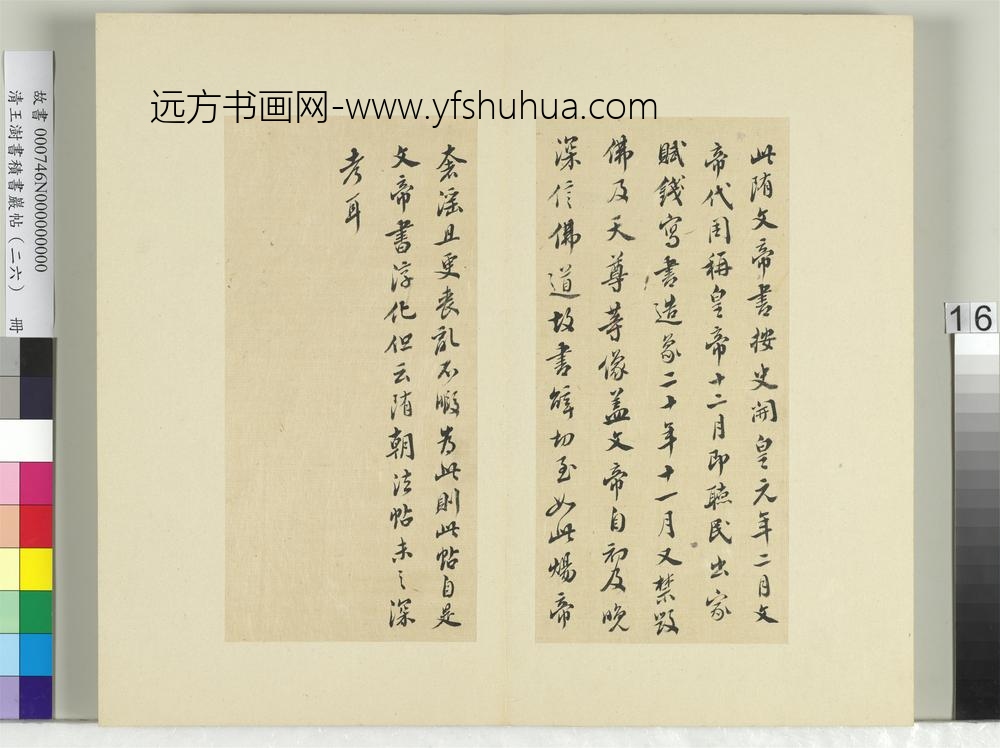 远方书画网-www.yfshuhua.com
此隋文帝書按史開皇元年二月文
帝代周稱皇帝十二月即聽民出家
賦錢寫書造象二十年十一月又禁毀
佛及天尊等像蓋文帝自初及晚
深信佛道故書辭切至如此煬帝
奢淫且更喪亂不暇為此則此帖自是
文帝書淳化但云隋朝法帖未之深
考耳
故書 000746N000000000
清王澍書積書巖帖(二六) 冊
16